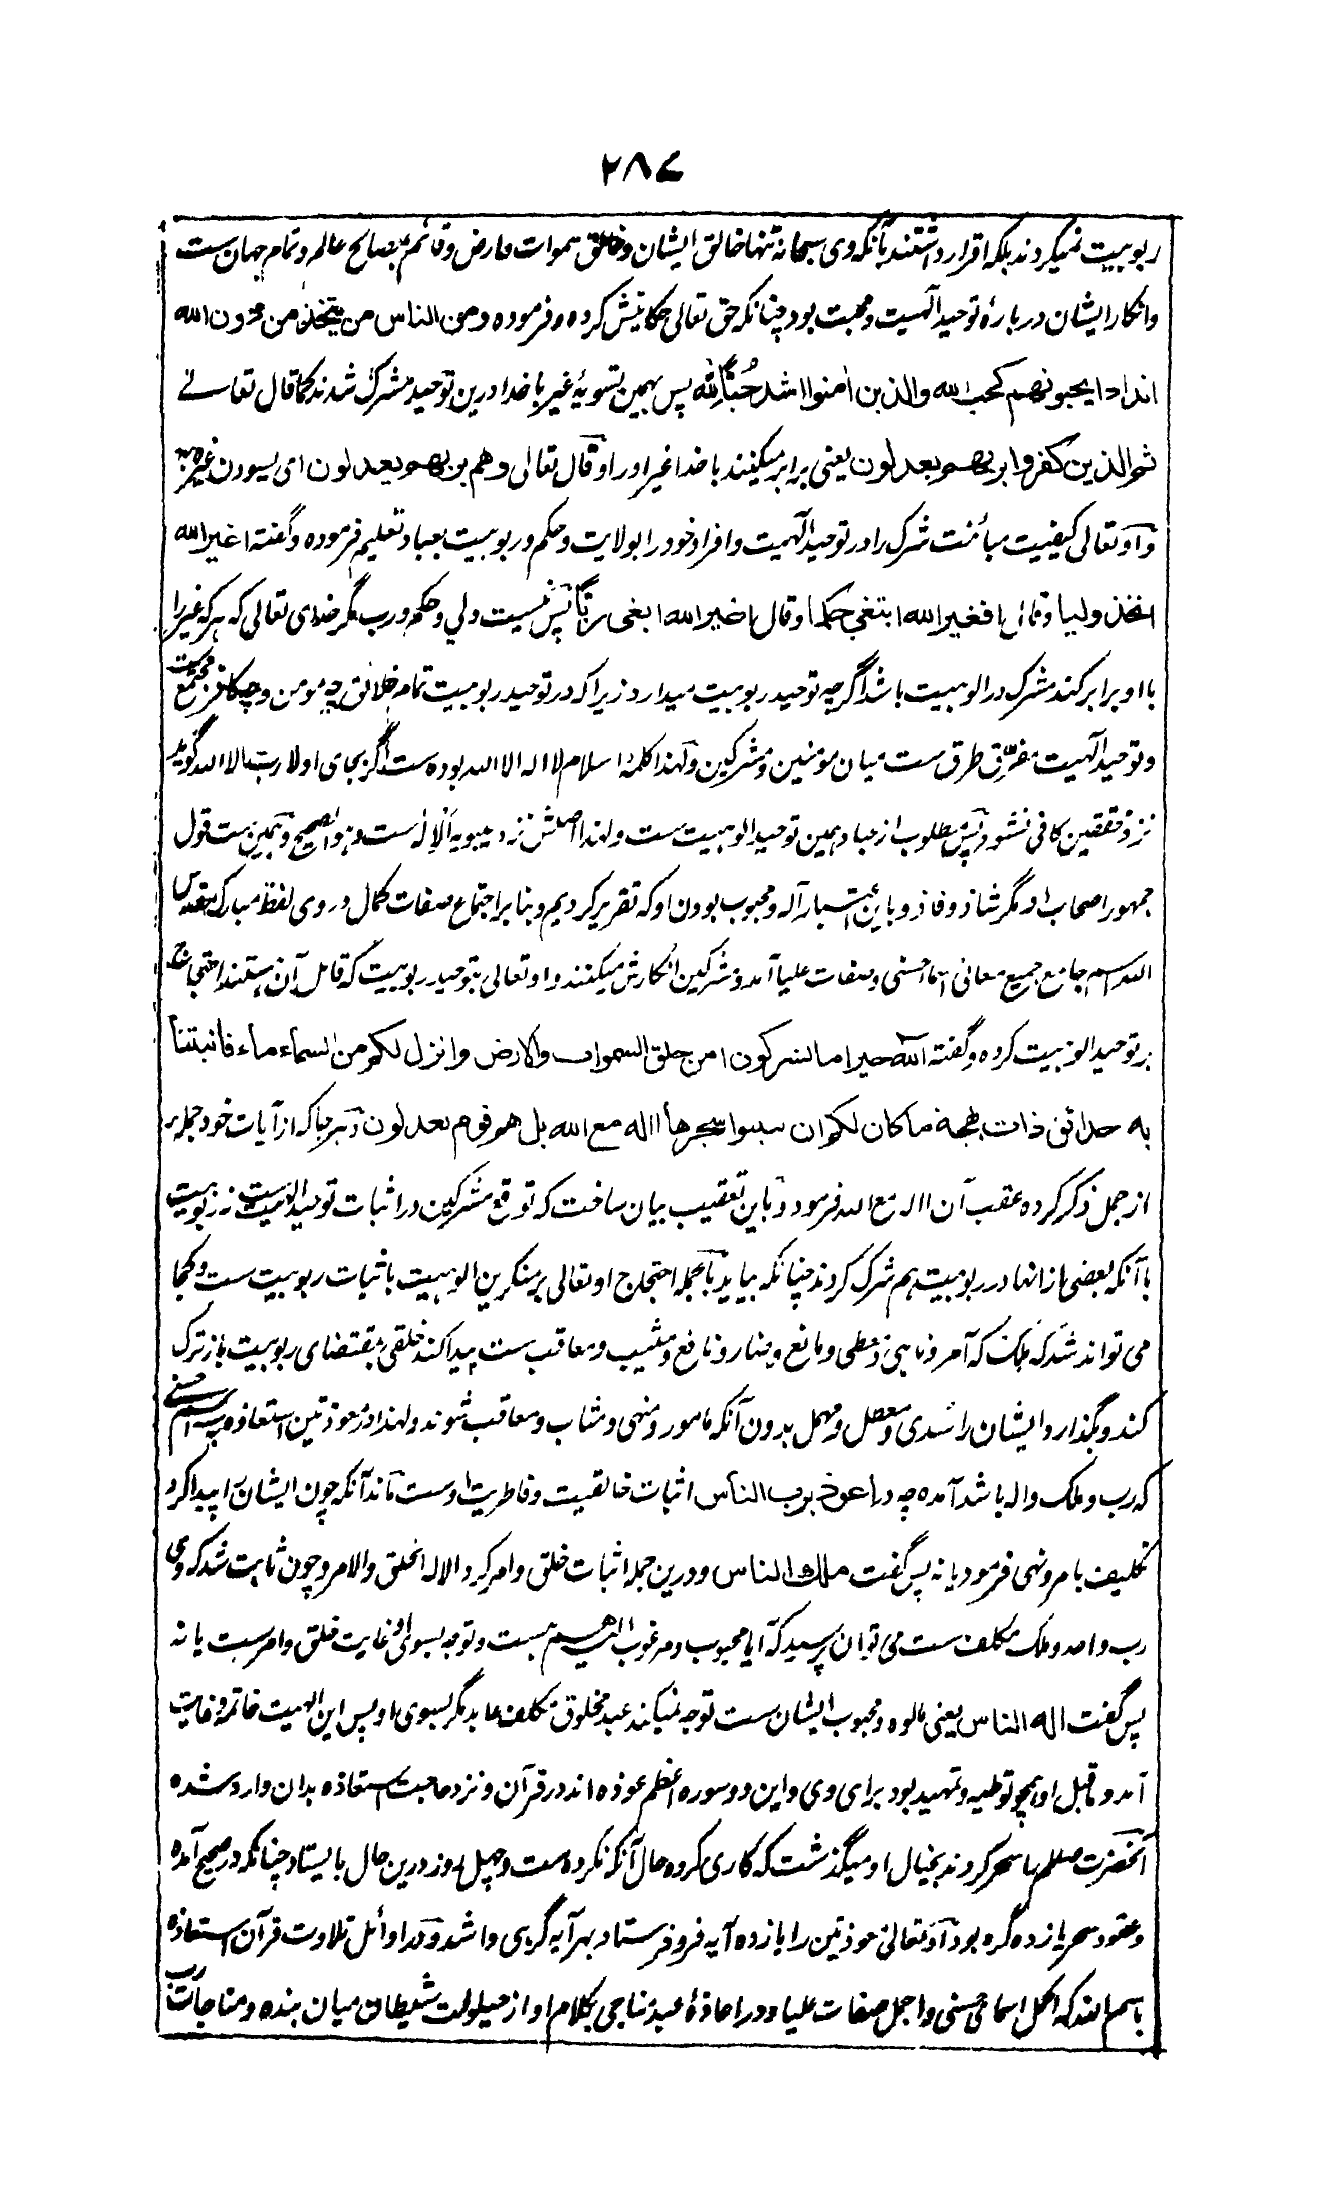 ۲۸۷
ربوبیت نمیکردند بلکه اقرار داشتند بآنکه وی سبحانه تنها خالق ایشان و خالق سموات و ارض و قائم بمصالح عالم و تمام جهان ست
و انکار ایشان در بارهٔ توحید آلهیت و محبت بود چنانکه حق تعالی حکایتش کرده و فرموده ومن الناس من یتخذ من دون الله
اندادا یحبونهم کحب الله والذین امنوا اشد حُبًّا لِلّٰه پس بهمین تسویهٔ غیر با خدا درین توحید مشرک شدند کما قال تعالے
ثم الذین کفروا بربهم یعدلون یعنی برابر میکنند با خدا غیر او را و قال تعالی وهم بربهم یعدلون ای یسوون غیره به
و او تعالی کیفیت مباینت شرک را در توحید الٓهیت و افراد خود را بولایت و حکم و ربوبیت بعباد تعلیم فرموده و گفته اغیر الله
اتخذ ولیا و قال افغیر الله ابتغی حکما و قال اغیر الله ابغی ربًّا پس نیست ولی و حکم و رب مگر خدای تعالی که هرکه غیر را
با او برابر کند مشرک در الوهیت باشد اگرچه توحید ربوبیت میدارد زیراکه در توحید ربوبیت تمام خلائق چه مومن و چه کافر مجتمع ست
و توحید الٓهیت مفرّق طرق ست میان مومنین و مشرکین و لهذا کلمهٔ اسلام لا اله الا الله بوده ست اگر بجای او لا رب الا الله گویند
نزد محققین کافی نشود پس مطلوب از عباد همین توحید الوهیت ست و لهذا اصلش نزد سیبویه اَلْاِلٰه ست و هو الصحیح و همین ست قول
جمهور اصحاب او مگر شاذ و فاذ و باین اعتبار آله و محبوب بودن او که تقریر کردیم و بنا بر اجتماع صفات کمال در وی لفظ مبارک مقدس
الله اسم جامع جمیع معانی اسماء حسنی و صفات علیا آمد و مشرکین انکارش میکنند و او تعالی بتوحید ربوبیت که قائل آن هستند احتجاج
بر توحید الوهیت کرده و گفته آلله خیر اما یشرکون امن خلق السموات والارض وانزل لکم من السماء ماء فانبتنا
به حدائق ذات بهجة ما کان لکم ان تنبتوا شجرها االه مع الله بل هم قوم یعدلون و هر جا که از آیات خود جمله
از جمل ذکر کرده عقب آن االه مع الله فرموده و باین تعقیب بیان ساخت که توقع مشرکین در اثبات توحید الوهیت ست نه ربوبیت
با آنکه بعضی از انها در ربوبیت هم شرک کردند چنانکه بیاید بالجمله احتجاج او تعالی بر منکرین الوهیت باثبات ربوبیت ست و کجا
می تواند شد که ملک که آمر و ناهی و معطی و مانع و ضار و نافع و مثیب و معاقب ست پیدا کند خلقی بمقتضای ربوبیت باز ترک
کند و بگذارد ایشان را سدی و معطل و مهمل بدون آنکه مامور و منهی و مثاب و معاقب شوند و لهذا در معوذتین استعاذه به اسم حسنے
که رب و ملک و اله باشد آمده چه در اعوذ برب الناس اثبات خالقیت و فاطریت اوست ماند آنکه چون ایشان را پیدا کرد
تکلیف بامر و نهی فرمود یا نه پس گفت ملك الناس و درین جمله اثبات خلق و امر کرد الا له الخلق والامر و چون ثابت شد که وی
رب واحد و ملک مکلف ست می توان پرسید که آیا محبوب و مرغوب الیهم هست و توجه بسوی او غایت خلق و امر ست یا نه
پس گفت اله الناس یعنی مالوه و محبوب ایشان ست توجه نمیکند عبد مخلوق مکلف عابد مگر بسوی او پس این الهیت خاتمه و غایت
آمد و قبل او همچو توطیه و تمهید بود برای وی و این دو سوره اعظم عوذه اند در قرآن و نزد حاجت استعاذه بدان وارد شده
آنحضرت صلعم را سحر کردند بخیال او میگذشت که کاری کرده حال آنکه نکرده ست و چهل روز درین حال بایستاد چنانکه در صحیح آمده
و عقود سحر یازده گره بود او تعالی معوذتین را یازده آیه فرو فرستاد بهر آیه گرهی وا شد و در اوائل تلاوت قرآن استعاذه
باسم الله که اکمل اسمای حسنی و اجمل صفات علیا و در اعاذهٔ عبد مناجی بکلام او از حیلولت شیطان میان بنده و مناجات رب